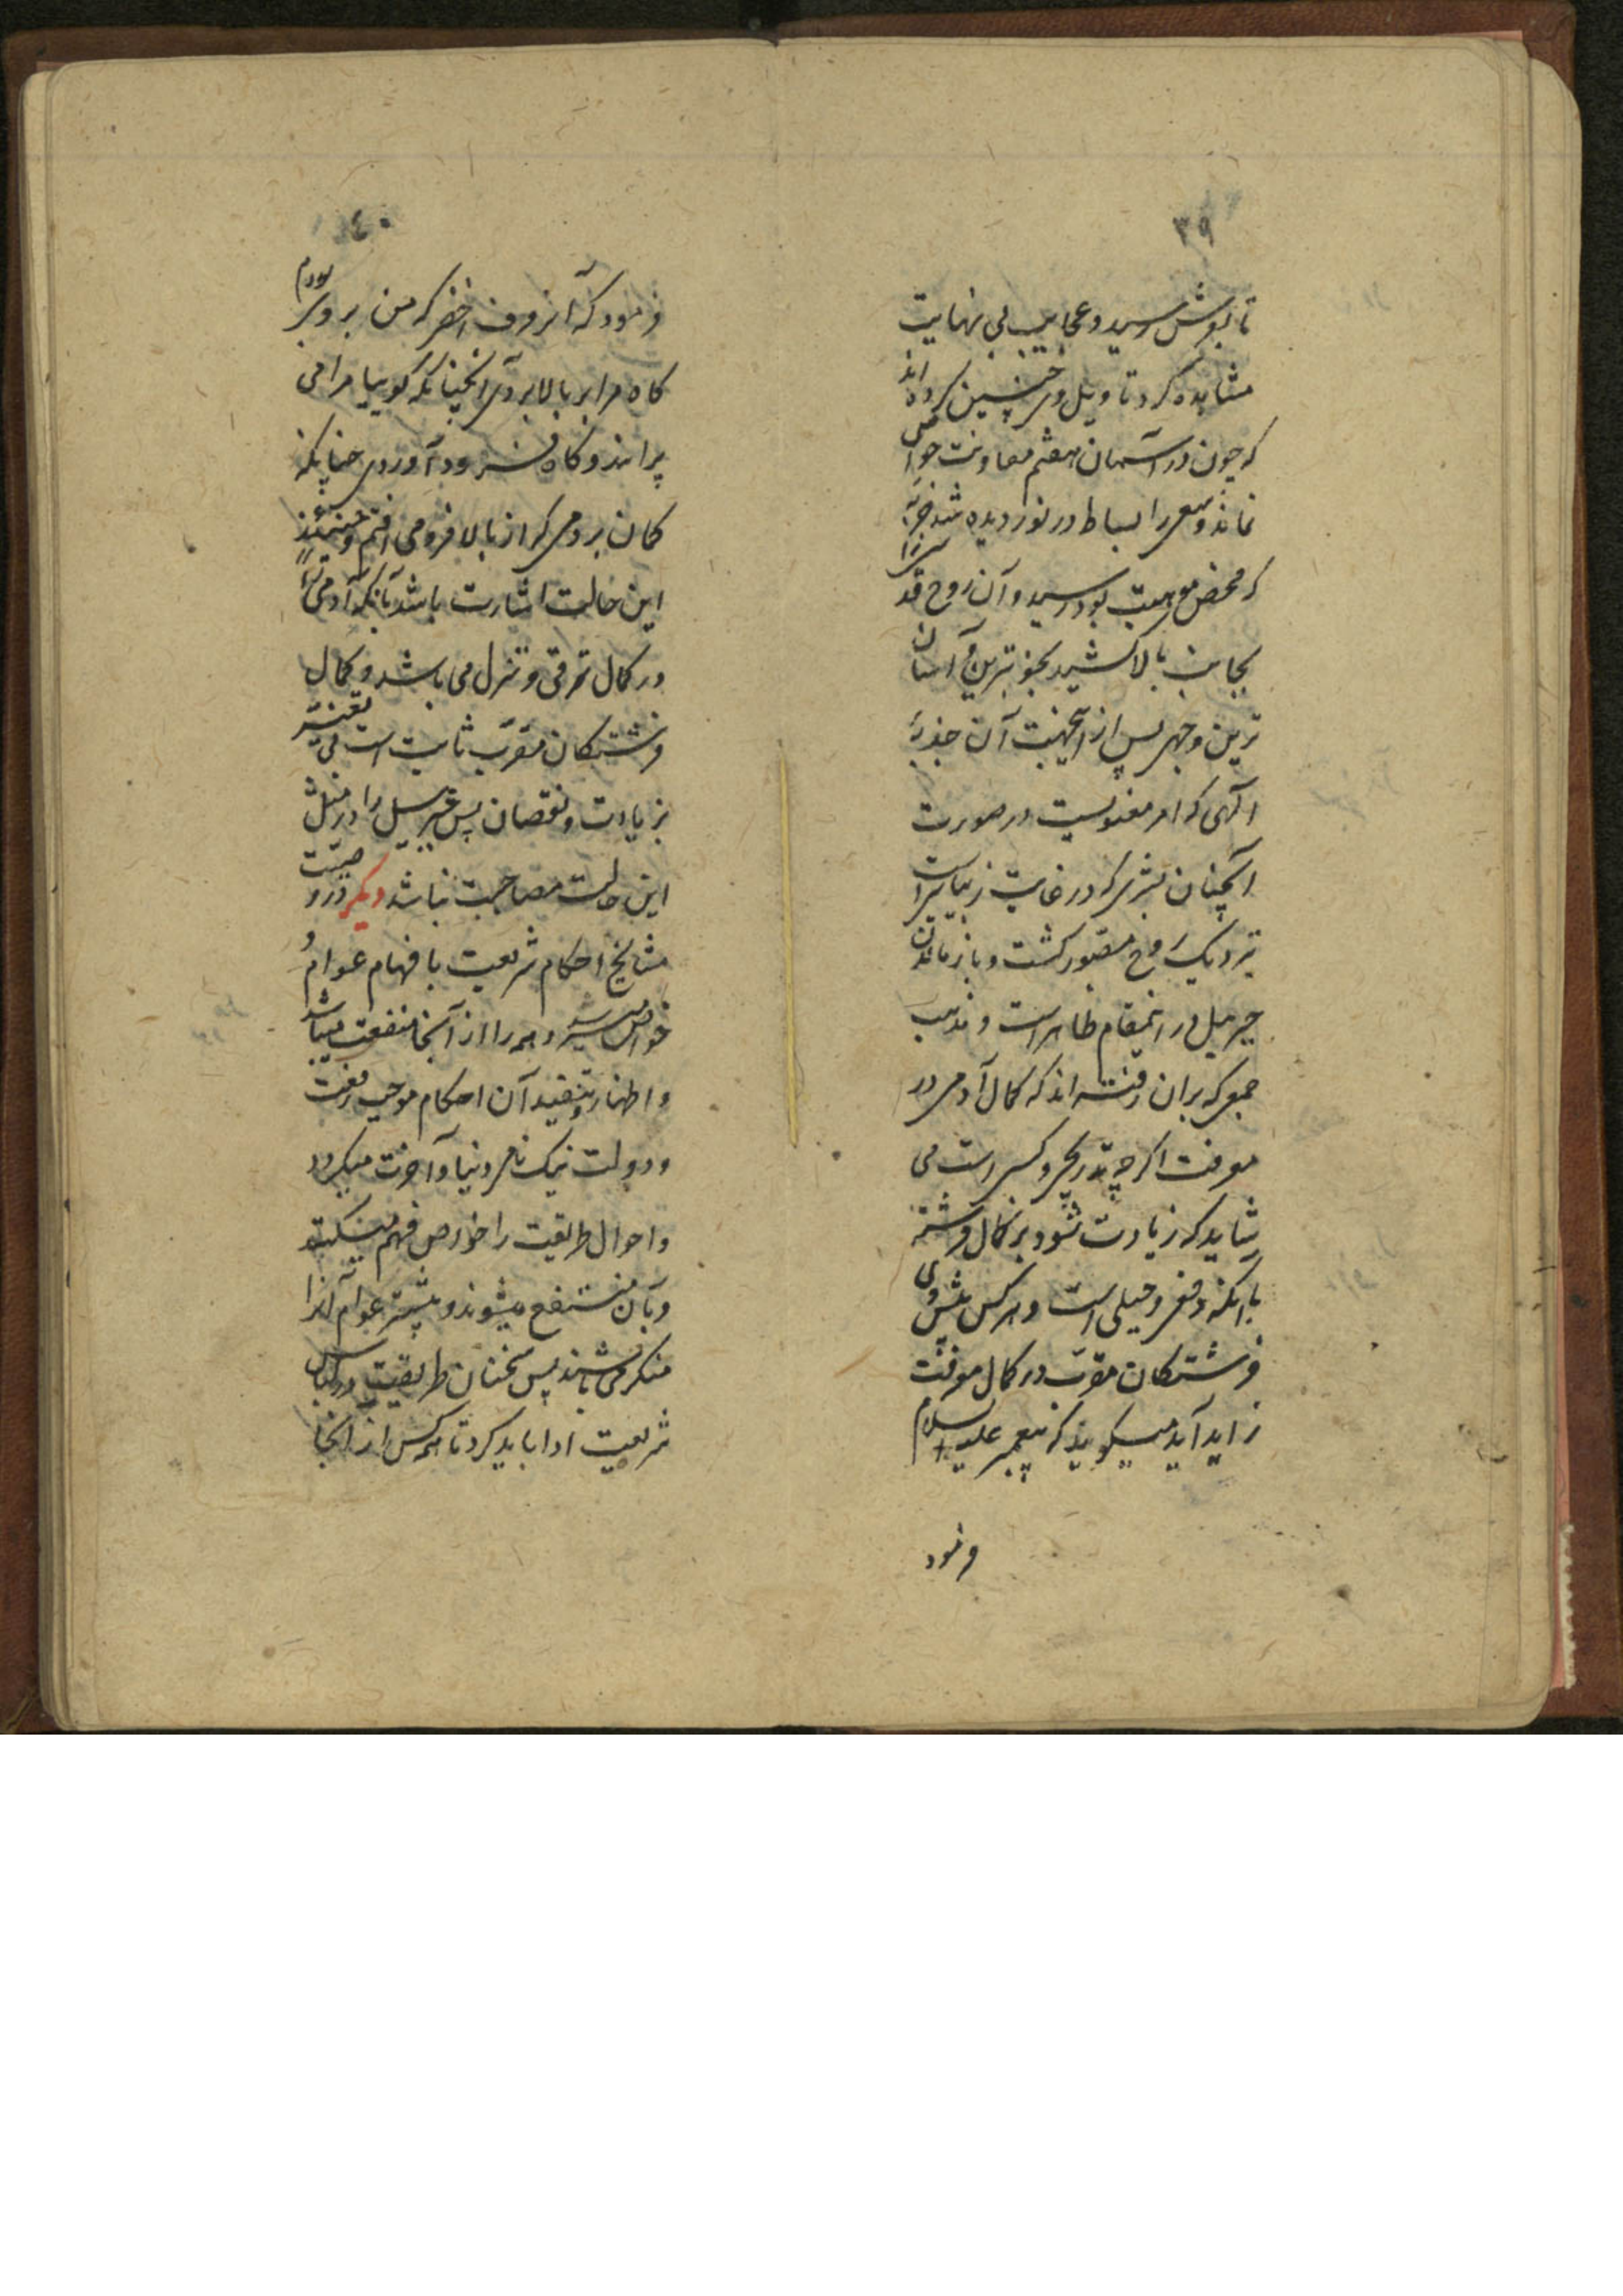 ۳۹
تا بعرش رسید و عجایب بی نهایت
مشاهده کرد تاویل وی چنین کرده اند
که چون در آسمان هفتم معاونت حواس
نماند و سعی را بساط در نوردیده شد جذبهٔ
که محض موهبت بود در رسید و آن روح قدسی را
بجانب بالا کشید بخوبترین و آسان
ترین وجهی پس از این جهت آن جذبهٔ
الهی که امر معنویست در صورت
آنچنان بشری که در غایت زیباییست
نزدیک روح متصور گشت و باز ماندن
جبرئیل در اینمقام ظاهر است و مذهب
جمعی که بران رفته اند که کمال آدمی در
معرفت اگرچه بتدریج و کسبی است می
شاید که زیادت شود بر کمال فرشته
با آنکه دفعی و جبلی است و هرکس پیش وی
فرشتکان مقرب در کمال معرفت
زاید آید میکویند که پیغمبر علیه السلام
فرمود
۴۰
فرمود که آن رفرف اخضر که من بر وی بودم
کاه مرا بر بالا بردی آنچنانکه کوییا مرا می
پرانند و کاه فرود آوردی چنانکه
کمان بردمی که از بالا فرو می افتم و حینئذ
این حالت اشارت باشد بآنکه آدمی را
در کمال ترقی و تنزل می باشد و کمال
فرشتکان مقرب ثابت است بی تغییر
بزیادت و نقصان پس جبرئیل را در مثل
این حالت مصاحبت نباشد دیکر در وصیت
مشایخ احکام شریعت با فهام عوام و
خواص میرسد و همه را از آنجا منفعت میباشد
و اظهار و تنفیذ آن احکام موجب رفعت
و دولت نیک نامی دنیا و آخرت میکردد
و احوال طریقت را خواص فهم میکنند
و بآن منتفع میشوند و بیشتر عوام آنرا
منکر می باشند پس سخنان طریقت در لباس
شریعت ادا باید کرد تا همه کس از آنجا